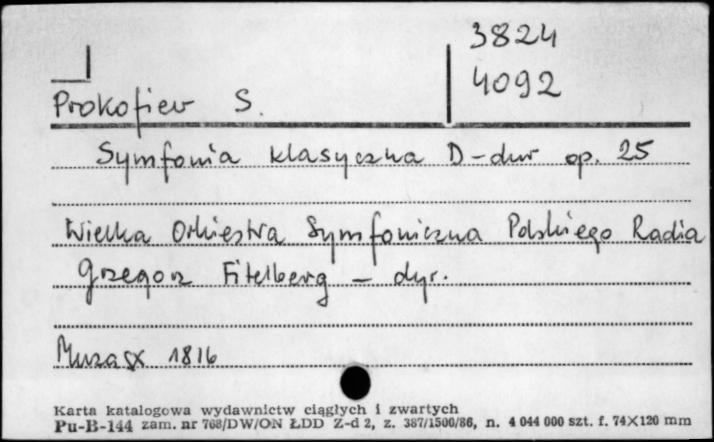 3824
4092
Prokofiew S.
Symfonia klasyczna D-dur op. 25
Wielka Orkiestra Symfoniczna Polskiego Radia
Grzegorz Fitelberg - dyr.
Muza SX 1816
Karta katalogowa wydawnictw ciągłych i zwartych
Pu-B-144 zam. nr 768/DW/ON ŁDD Z-d 2, z. 387/1500/86, n. 4 044 000 szt. f. 74×120 mm